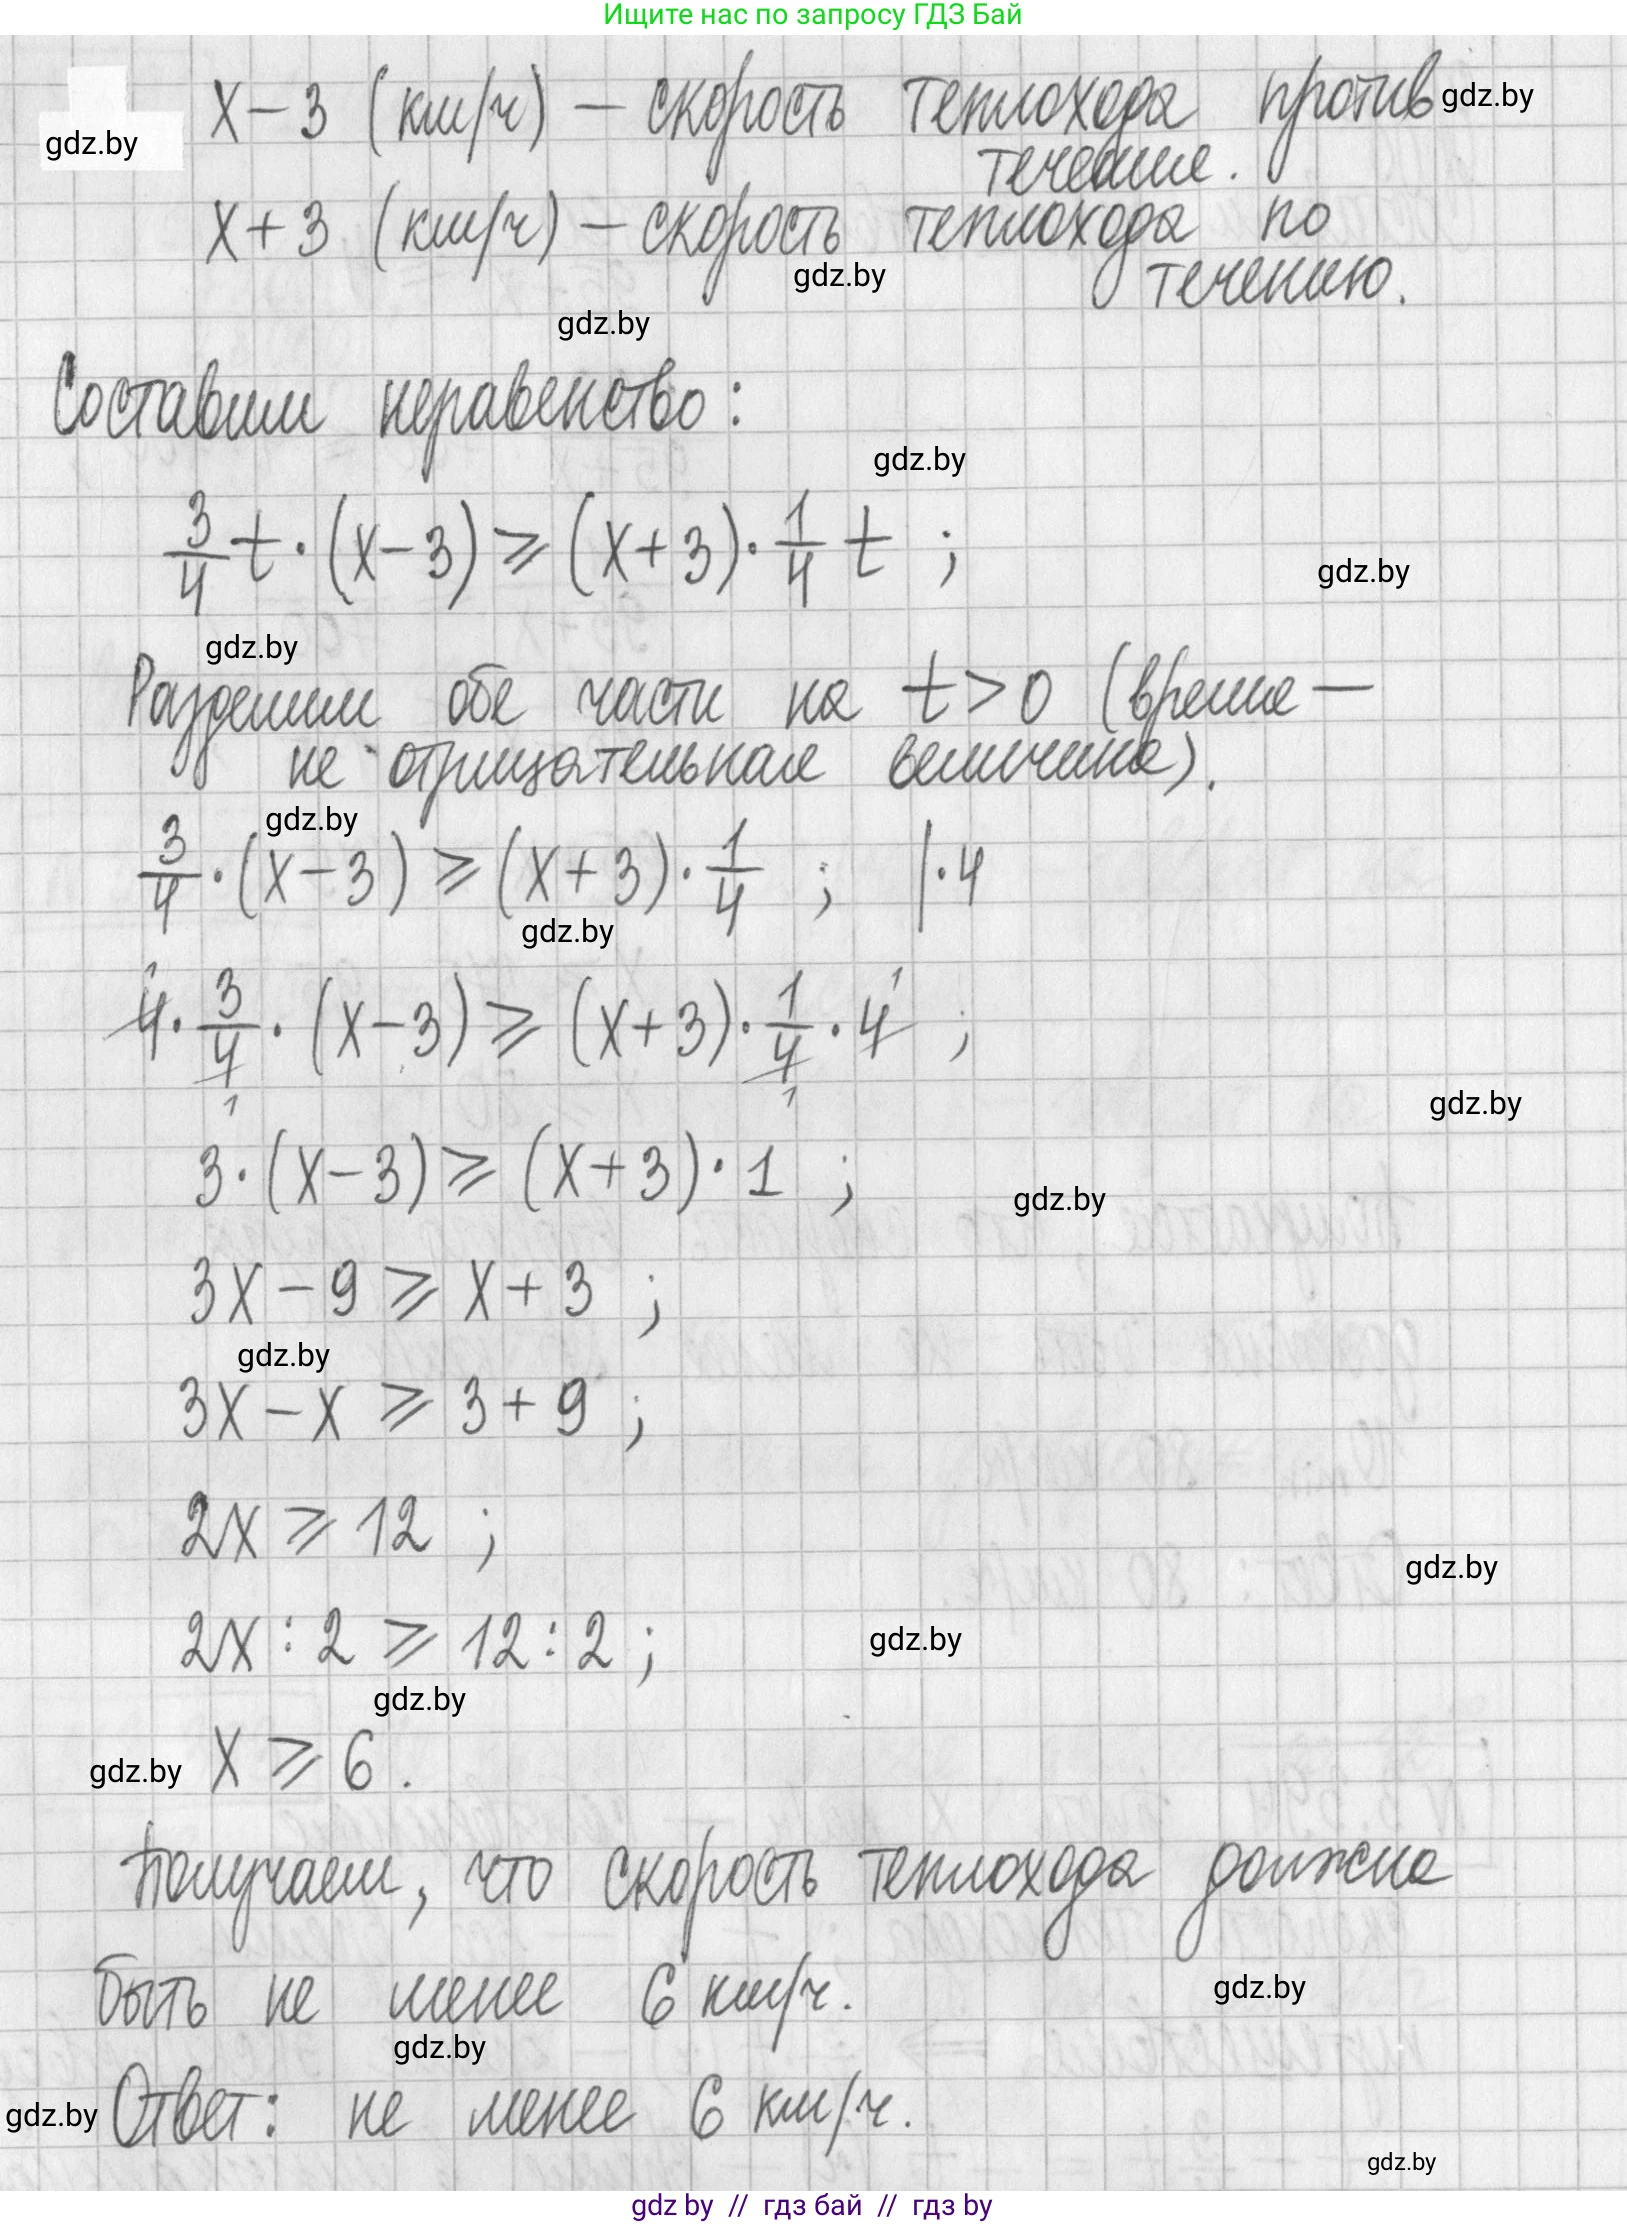 Ищите нас по запросу ГДЗ Бай
x – 3 (км/ч) – скорость теплохода против gdz.by
gdz.by
течения.
x + 3 (км/ч) – скорость теплохода по
gdz.by
течению.
gdz.by
Составим неравенство:
gdz.by
3/4 t · (x – 3) ⩾ (x + 3) · 1/4 t ;
gdz.by
gdz.by
Разделим обе части на t > 0 (время –
не отрицательная величина).
gdz.by
3/4 · (x – 3) ⩾ (x + 3) · 1/4 ; | · 4
gdz.by
4 · 3/4 · (x – 3) ⩾ (x + 3) · 1/4 · 4 ;
gdz.by
3 · (x – 3) ⩾ (x + 3) · 1 ;
gdz.by
3x – 9 ⩾ x + 3 ;
gdz.by
3x – x ⩾ 3 + 9 ;
2x ⩾ 12 ;
gdz.by
2x : 2 ⩾ 12 : 2 ;
gdz.by
gdz.by
gdz.by x ⩾ 6 .
Получаем, что скорость теплохода должна
быть не менее 6 км/ч.
gdz.by
gdz.by
gdz.by Ответ: не менее 6 км/ч.
gdz.by
gdz by // гдз бай // гдз by